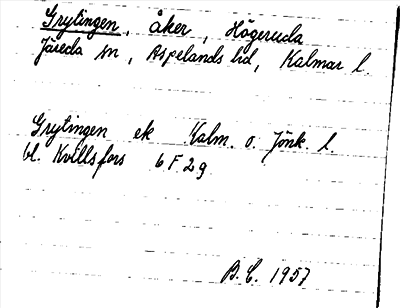 Grytingen, åker, Högeruda
Järeda sn, Aspelands hd, Kalmar l.
Grytingen ek Kalm. o. Jönk. l.
bl. Kvillsfors 6 F 2 g
B. C. 1957